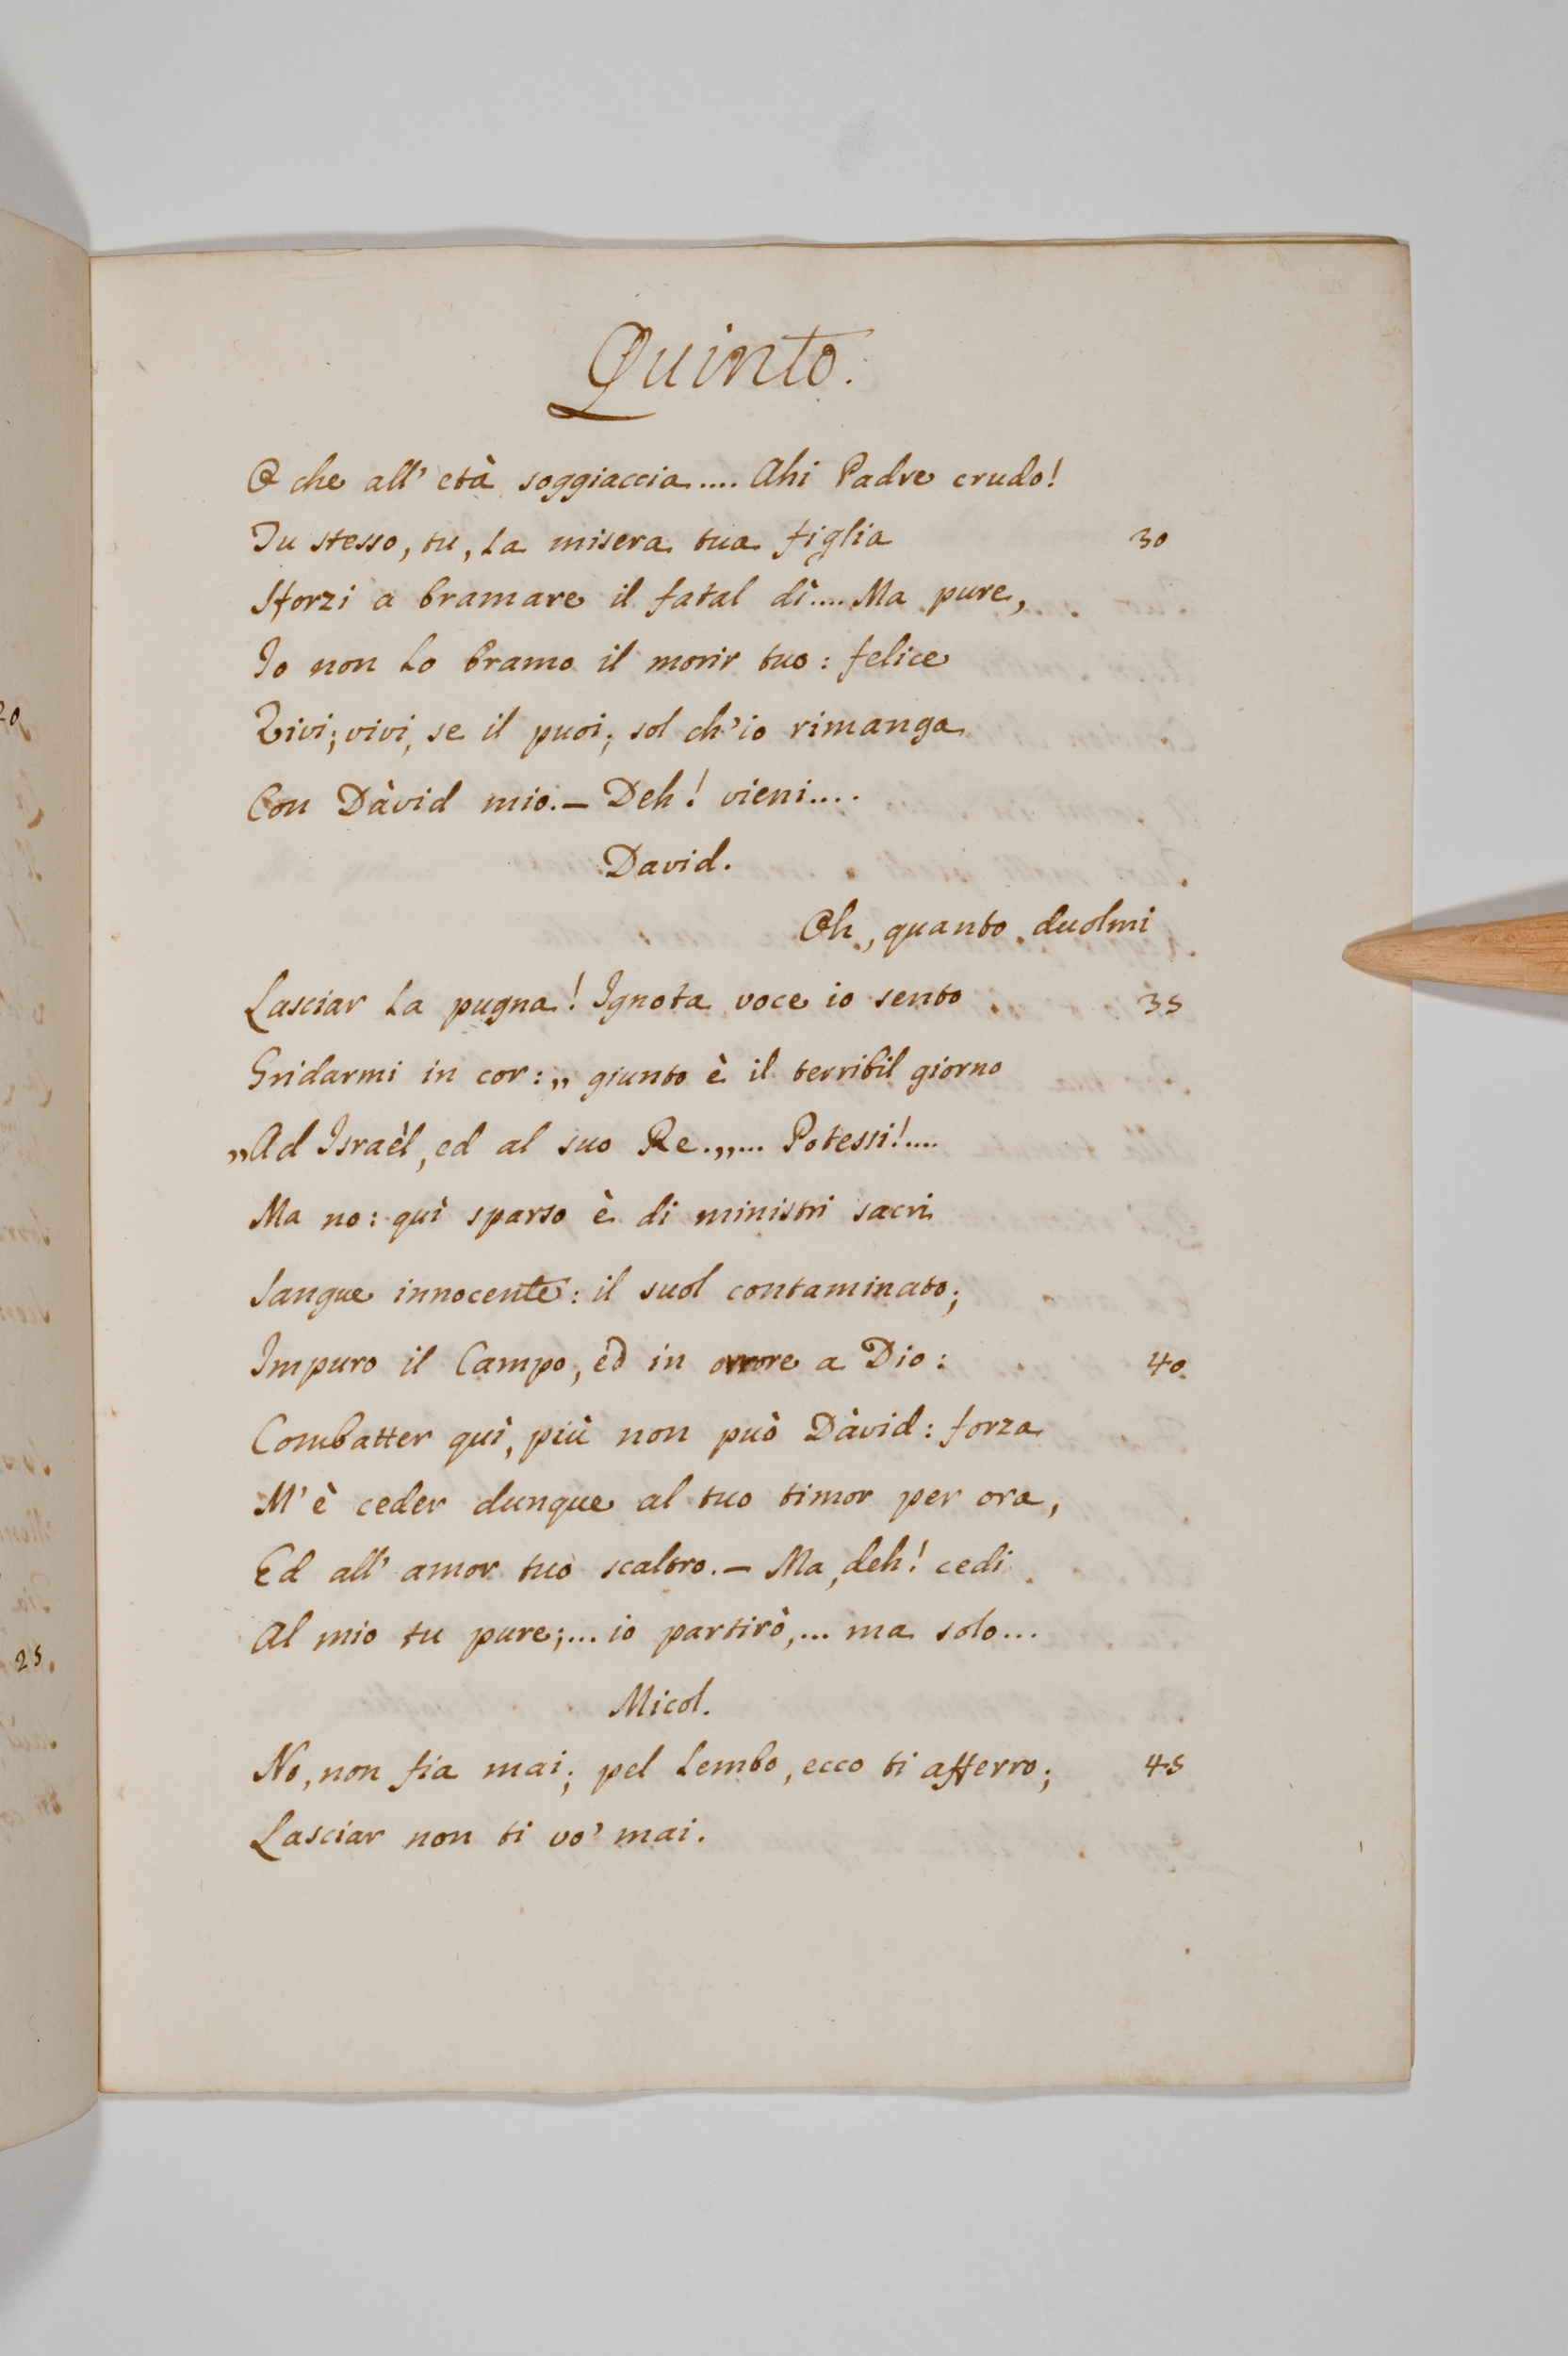 Quinto.
O che all' età soggiaccia.... Ahi Padre crudo!
Tu stesso, tu, la misera tua figlia 30
Sforzi a bramare il fatal dì.... Ma pure,
Io non lo bramo il morir tuo: felice
Vivi; vivi, se il puoi; sol ch'io rimanga
Con Dàvid mio. — Deh! vieni....
David.
Oh, quanto duolmi
Lasciar la pugna! Ignota voce io sento 35
Gridarmi in cor: „ giunto è il terribil giorno
„ Ad Israèl, ed al suo Re. „... Potessi!....
Ma no: quì sparso è di ministri sacri
Sangue innocente: il suol contaminato;
Impuro il Campo, ed in orrore a Dio: 40.
Combatter quì, più non può Dàvid: forza
M'è ceder dunque al tuo timor per ora,
Ed all' amor tuo scaltro. — Ma, deh! cedi
Al mio tu pure;... io partirò,... ma solo...
Micol.
No, non fia mai; pel lembo, ecco ti afferro; 45
Lasciar non ti vo' mai.
20
25